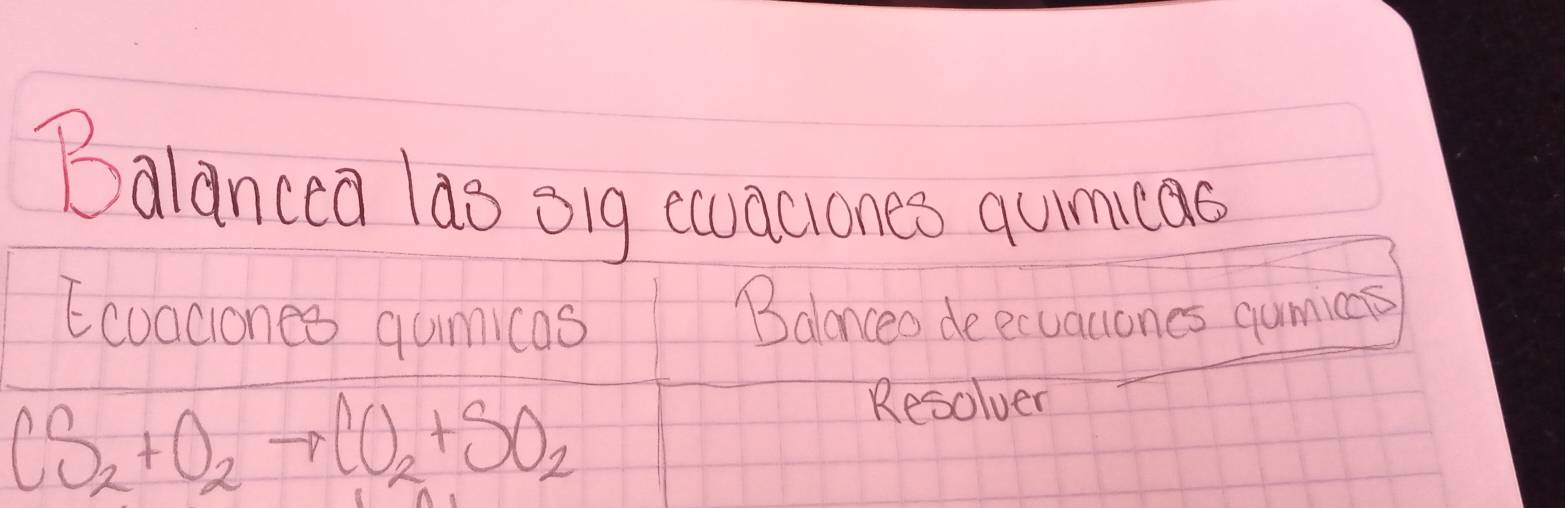 Balancea las sig ecuaciones quimicas
Ecuaciones quimicas
Balanceo de ecuaciones quimicas
Resolver
CS₂ + O₂ → CO₂ + SO₂